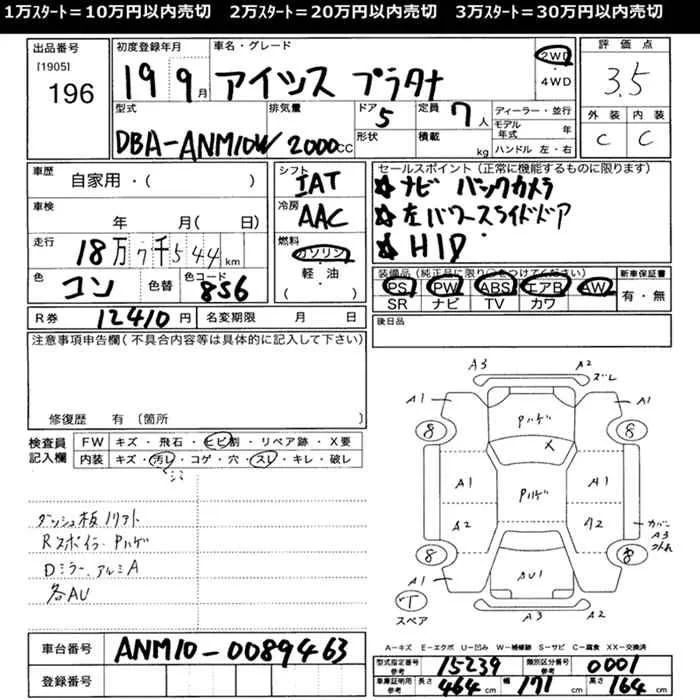 1万ｽﾀｰﾄ＝10万円以内売切　2万ｽﾀｰﾄ＝20万円以内売切　3万ｽﾀｰﾄ＝30万円以内売切
出品番号
[1905]
196
初度登録年月
19 9月
車名・グレード
アイシス プラタナ
2WD
・
4WD
評価点
3.5
外装 内装
C C
型式
DBA-ANM10W
排気量
2000CC
ドア
5
形状
定員
7人
積載
kg
ディーラー・並行
モデル年式 年
ハンドル 左・右
車歴
自家用・( )
車検
年 月( 日)
走行
18万7千544km
色
コン
色替
色コード
8S6
シフト
IAT
冷房
AAC
燃料
ガソリン
・
軽・油
( )
セールスポイント（正常に機能するものに限ります）
☆ナビ バックカメラ
☆左パワースライドドア
☆HID
装備品（純正品に限り○をつけてください）
PS PW ABS エアB AW
SR ナビ TV カワ
新車保証書
有・無
R券 12410円 名変期限 月 日
後日品
注意事項申告欄（不具合内容等は具体的に記入して下さい）
修復歴 有〔箇所 〕
検査員
記入欄
FW キズ・飛石・ヒビ割・リペア跡・X要
内装 キズ・汚レ・コゲ・穴・スレ・キレ・破レ
シミ
ダッシュ板ノリアト
RスポイラーPハゲ
Dミラー、アルミA
各AU
A3 A2
ズレ
A1 A1
8 Pハゲ 8
X
A1 Pハゲ A1
A2 A2
カバー
A3
8 8
A1 AU1 A1
T
スペア
A3 A2
A－キズ E－エクボ U－凹み W－補修跡 S－サビ C－腐食 XX－交換済
車台番号 ANM10-0089463
登録番号
型式指定番号
参考
15239
類別区分番号
参考
0001
車庫証明用
参考
長さ 464cm 幅 171cm 高さ 164cm